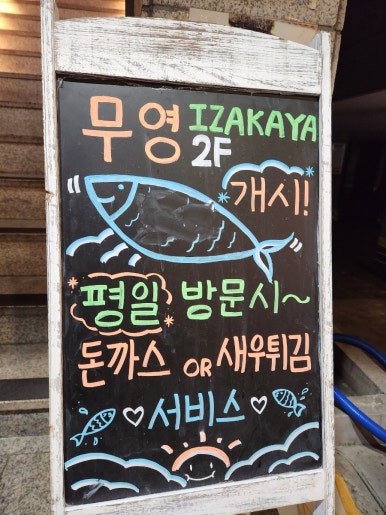 무영 IZAKAYA
2F
개시!
평일 방문시~
돈까스 OR 새우튀김
♡ 서비스 ♡